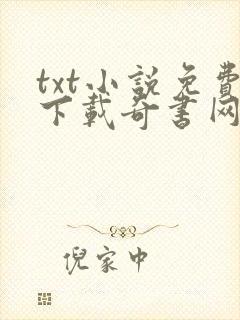 txt小説免費
下載奇書网
倪家中